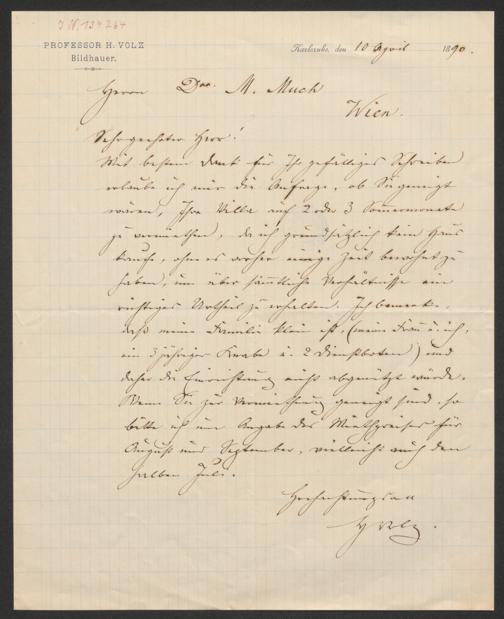 J.N. 134264
PROFESSOR H. VOLZ
Bildhauer.
Karlsruhe, den 10 April 1890.
Herrn Dor. M. Much
Wien.
Sehr geehrter Herr!
Mit bestem Dank für Ihr gefälliges Schreiben
erlaube ich mir die Anfrage, ob Sie geneigt
wären, Ihre Villa auf 2 oder 3 Sommermonate
zu vermiethen, da ich grundsätzlich kein Haus
kaufe, ohne es vorher einige Zeit bewohnt zu
haben, um über sämmtliche Verhältnisse ein
richtiges Urtheil zu erhalten. Ich bemerke,
daß meine Familie klein ist, (meine Frau u. ich,
ein 3 jähriger Knabe u. 2 Dienstboten) und
daher die Einrichtung nicht abgenützt würde.
Wenn Sie zur Vermiethung geneigt sind, so
bitte ich um Angabe des Miethpreises für
August und September, vielleicht auch den
halben Juli.
Hochachtungsvoll
H Volz.